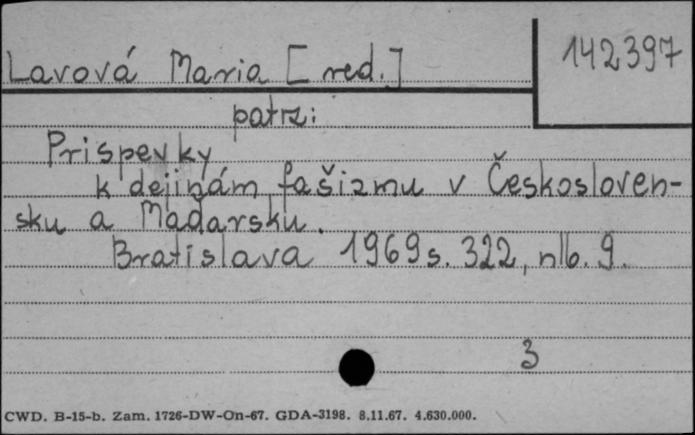 142397
Lavová Maria [red.]
patrz:
Prispevky
k dejinám fašizmu v Českosloven-
sku a Maďarsku.
Bratislava 1969 s. 322, nlb. 9.
3
CWD. B-15-b. Zam. 1726-DW-On-67. GDA-3198. 8.11.67. 4.630.000.